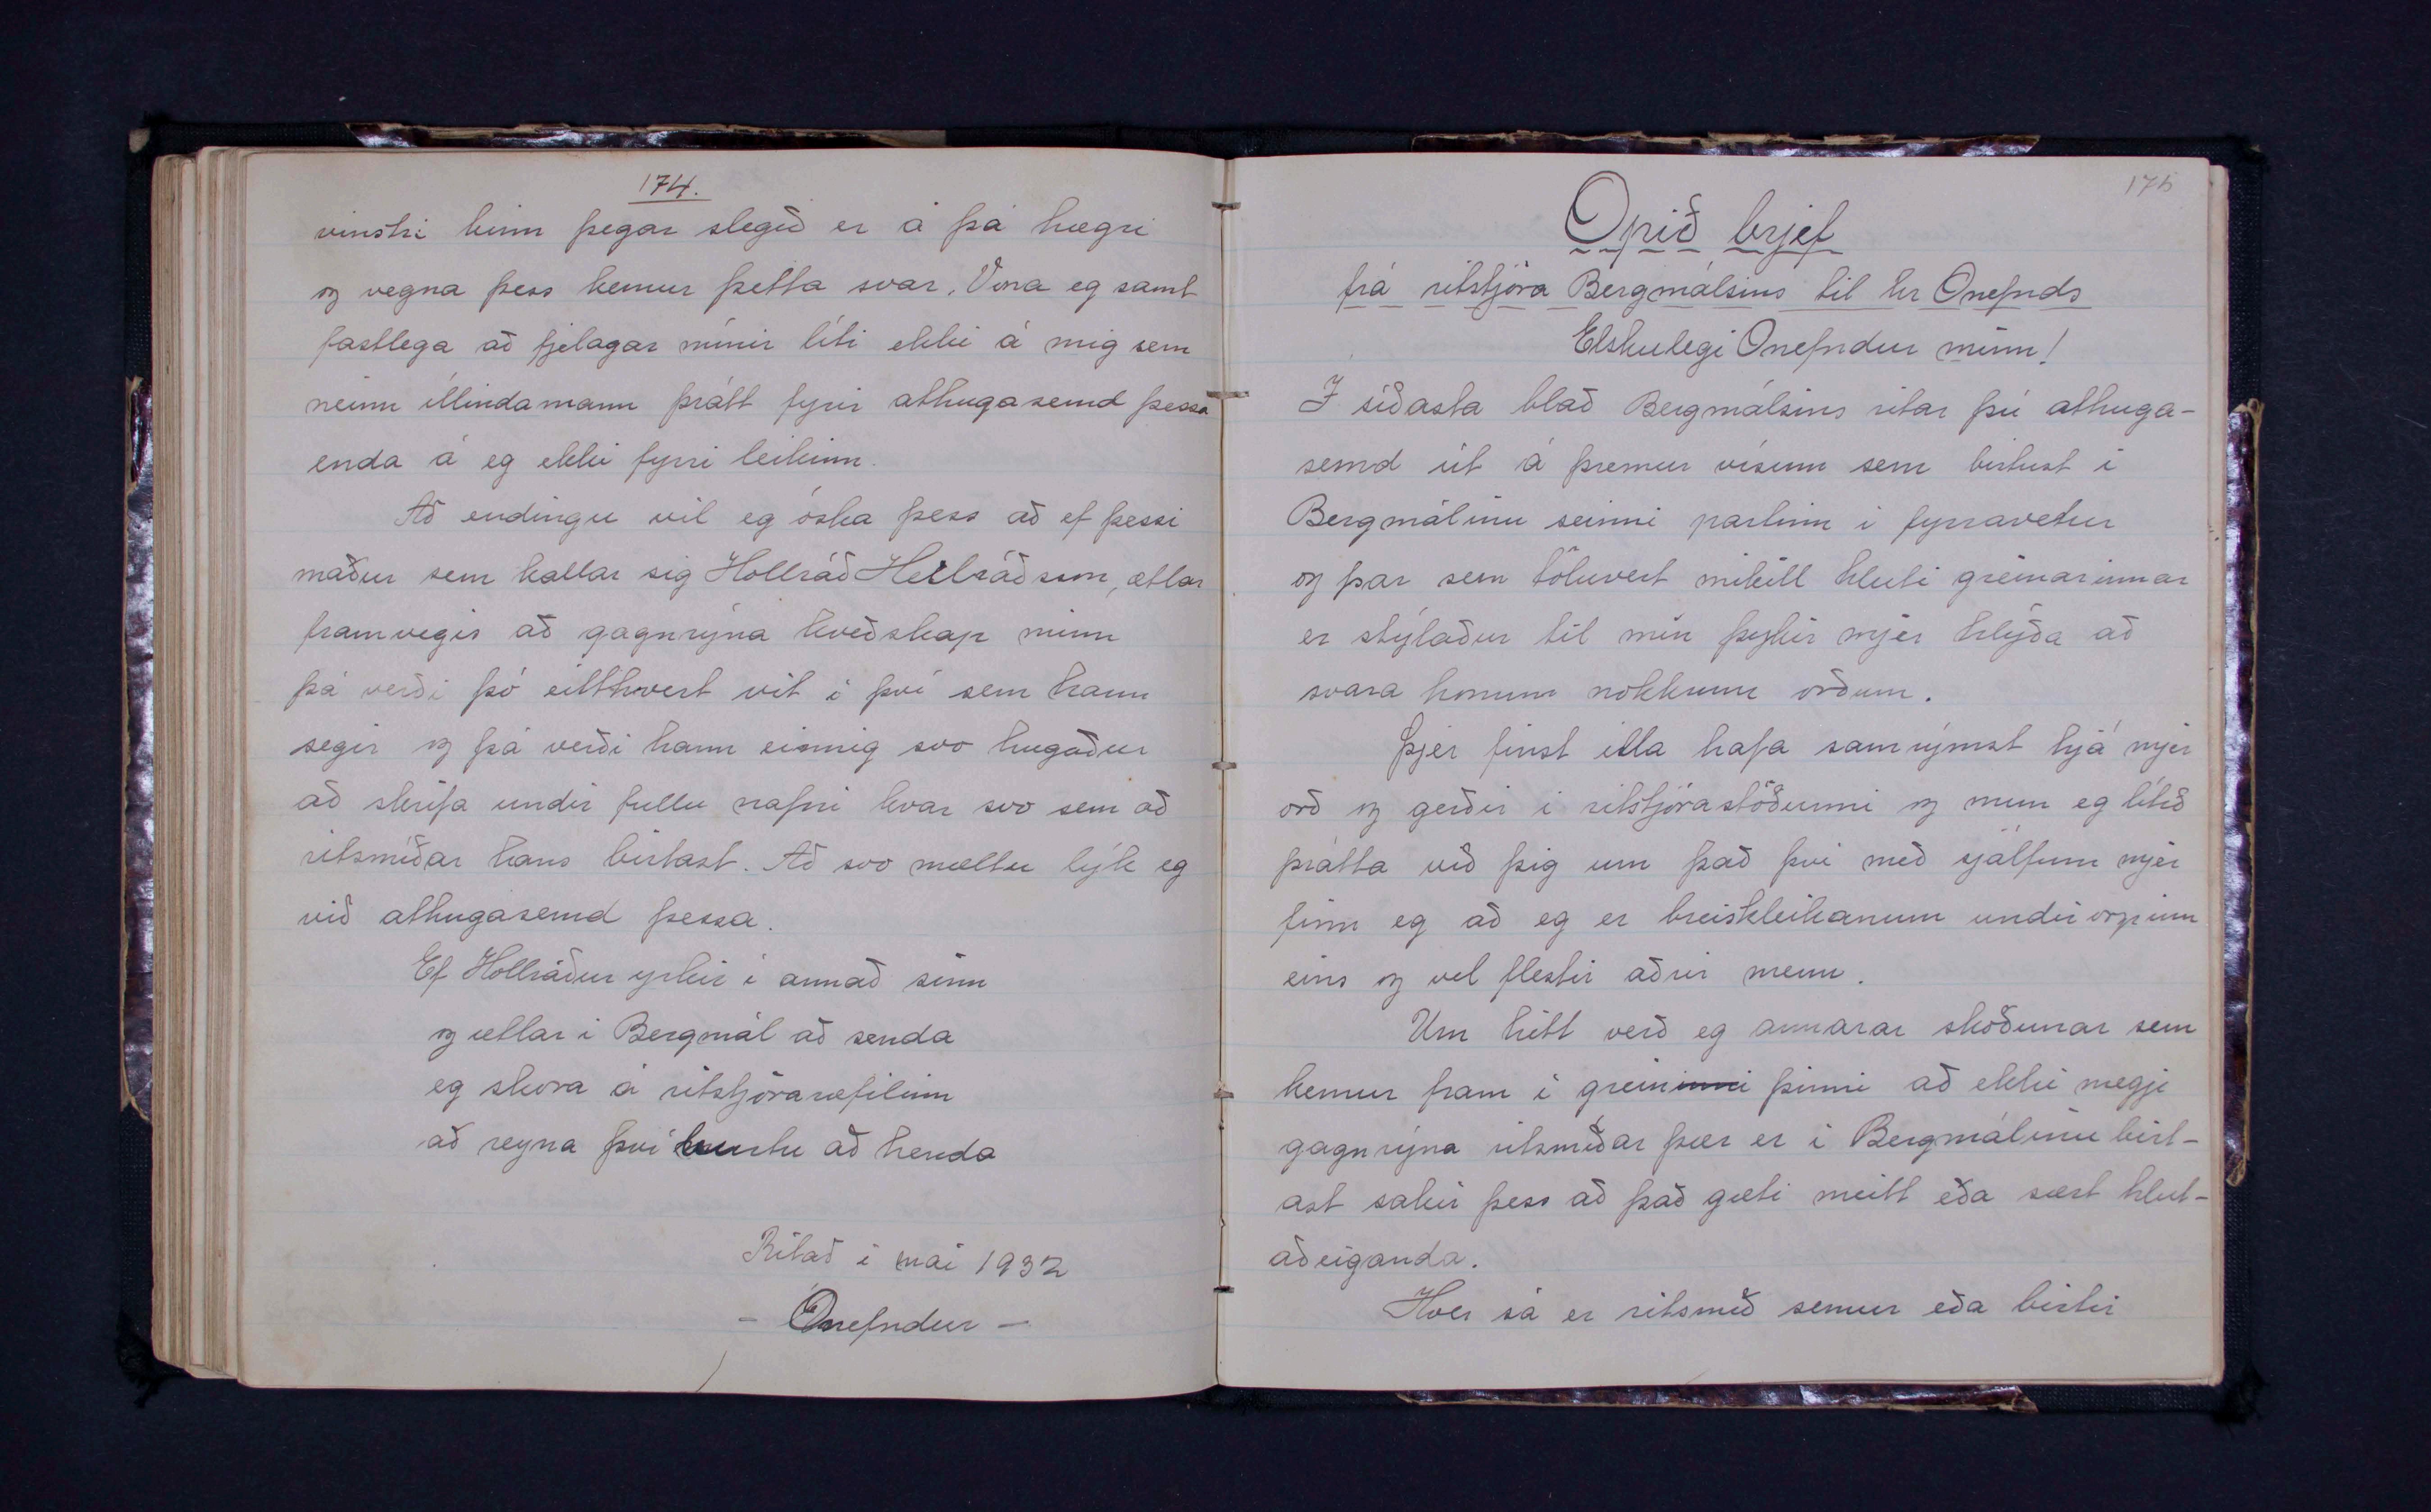 174.
vinstri kinn þegar slegið er á þá hægri
og vegna þess kemur þetta svar. Vona eg samt
fastlega að fjelagar mínir líti ekki á mig sem
neinn illindamann þrátt fyrir athugasemd þessa
enda á eg ekki fyrri leikinn.
Að endingu vil eg óska þess að ef þessi
maður sem kallar sig Hollráð Heilráðsson, ætlar
framvegis að gagnrýna kveðskap minn
þá verði þó eitthvert vit í því sem hann
segir og þá verði hann einnig svo hugaður
að skrifa undir fullu nafni hvar svo sem að
ritsmíðar hans birtast. Að svo mæltu lýk eg
við athugasemd þessa.
Ef Hollráður yrkir í annað sinn
og ætlar í Bergmál að senda
eg skora á ritstjóraræfilinn
að reyna því burtu að henda
Ritað í maí 1932
- Ónefndur -
175
Opið brjef
frá ritstjóra Bergmálsins til hr Ónefnds
Elskulegi Ónefndur minn!
Í síðasta blað Bergmálsins ritar þú athuga-
semd út á þremur vísum sem birtust í
Bergmálinu seinni partinn í fyrravetur
og þar sem töluvert mikill hluti greinarinnar
er stýlaður til mín þykir mjer hlýða að
svara honum nokkrum orðum.
Þjer finst illa hafa samrýmst hjá mjer
orð og gerðir í ritstjórastöðunni og mun eg lítið
þrátta við þig um það því með sjálfum mjer
finn eg að eg er breiskleikanum undirorpinn
eins og vel flestir aðrir menn.
Um hitt verð eg annarar skoðunar sem
kemur fram í greininni þinni að ekki megi
gagnrýna ritsmíðar þær er í Bergmálinu birt-
ast sakir þess að það gæti meitt eða sært hlut-
aðeiganda.
Hver sá er ritsmíð semur eða birtir